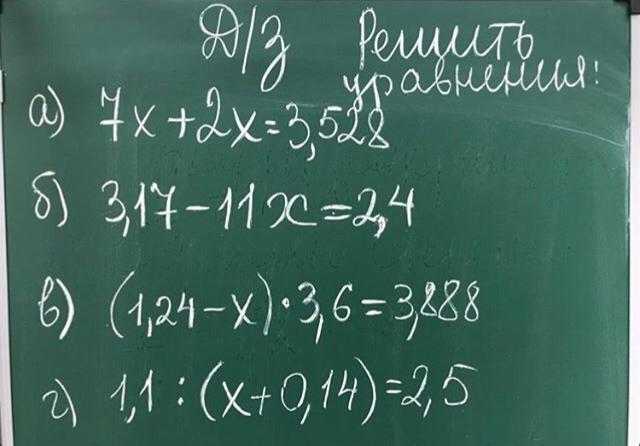 Д/З Решить
уравнения:
а) 7x+2x=3,528
б) 3,17-11x=2,4
в) (1,24-x)·3,6=3,888
г) 1,1:(x+0,14)=2,5